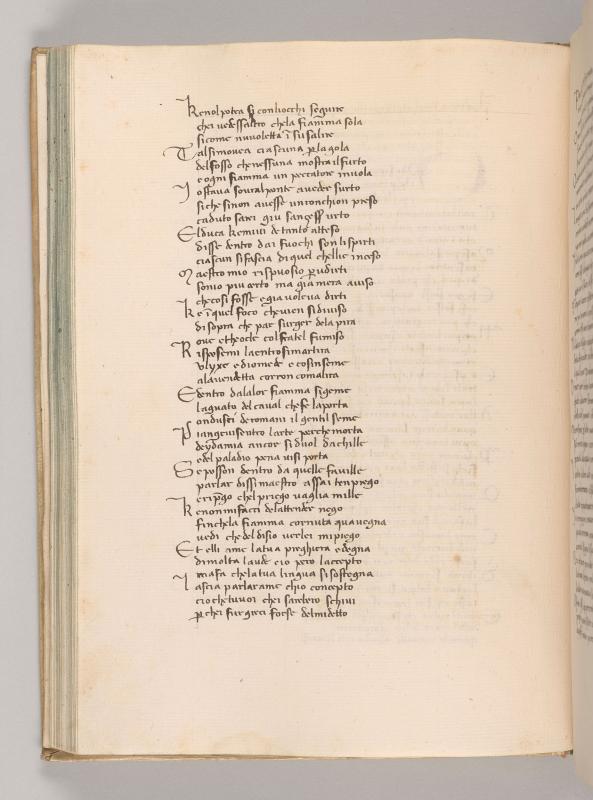 Kenol potea sj conliocchi seguire
chei vedessaltro chela fiamma sola
sicome nuvoletta ī su salire
Tal simovea ciascuna pla gola
del fosso che nessuna mostra il furto
e ogni fiamma un peccatore invola
Io stava soural ponte aveder surto
siche sinon avesse un ronchion preso
caduto sarei giu sanzess urto
El duca kemi vi de tanto atteso
disse dentro dai fuochi son li spirti
ciascun si fascia di quel chellie inceso
Maestro mio rispuosio pudirti
sonio piu certo ma gia mera aviso
che cosi fosse egia voleva dirti
Ke ī quel foco che vien si diviso
di sopra che par surger dela pira
ove etheocle col fratel fu miso
Risposemi la entro si martira
ulyxe e diomede e cosi nseme
ala vendetta corron comalira
E dentro dalalor fiamma si geme
laguato del caval che fe laporta
ondusci de romani il gentil seme
Piangevisentro larte perche morta
deydamia ancor si duol dachille
e del paladio pena visi porta
Se posson dentro da quelle faville
parlar dissi maestro assai ten priego
e ripgo chel priego vaglia mille
Ke non mi facci de lattender nego
fin chela fiamma cornuta qua vegna
vedi che del disio ver lei mi piego
Et elli ame la tua preghiera e degna
di molta laude e io pero laccepto
ma fa che la tua lingua si sostegna
Lascia parlarame chio concepto
cio che tu vuoi chei sarebero schivi
pchei fur greci forse del mi detto